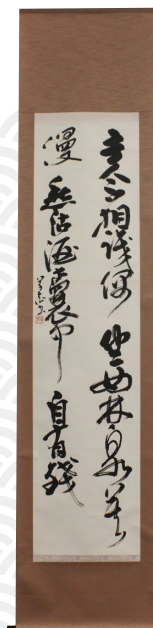 主人不相識偶坐為林泉莫
漫愁沽酒囊中自有錢